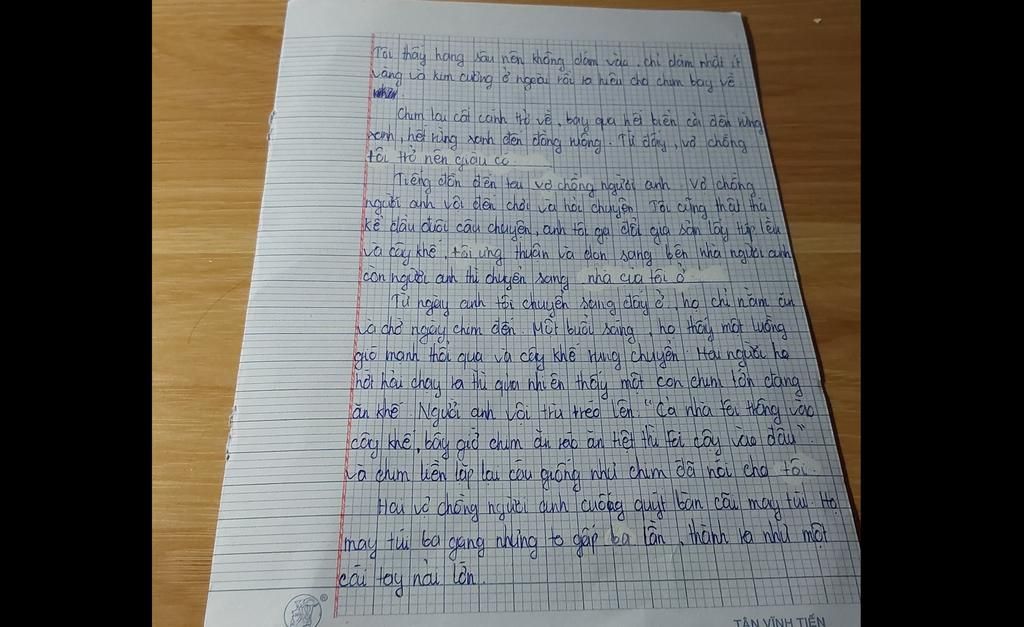 Tôi thấy hang sâu nên không dám vào, chỉ dám nhặt ít
vàng và kim cương ở ngoài rồi ra hiệu cho chim bay về
Chim lại cất cánh trở về, bay qua hết biển cả đến rừng
xanh, hết rừng xanh đến đồng ruộng. Từ đấy, vợ chồng
tôi trở nên giàu có
Tiếng đồn đến tai vợ chồng người anh. Vợ chồng
người anh vội đến chơi và hỏi chuyện Tôi cũng thật thà
kể đầu đuôi câu chuyện, anh tôi gạ đổi gia sản lấy túp lều
và cây khế, tôi ưng thuận và dọn sang bên nhà người anh
còn người anh thì chuyển sang nhà của tôi ở
Từ ngày anh tôi chuyển sang đấy ở, họ chỉ nằm ăn
và chờ ngày chim đến. Một buổi sáng, họ thấy một luồng
gió mạnh thổi qua và cây khế rung chuyển. Hai người họ
hớt hải chạy ra thì quả nhiên thấy một con chim lớn đang
ăn khế. Người anh vội tru tréo lên: "Cả nhà tôi trông vào
cây khế, bây giờ chim ăn rác ăn tiệt thì tôi cậy vào đâu".
Và chim liền lặp lại câu giống như chim đã nói cho tôi.
Hai vợ chồng người anh cuống quýt bàn cãi may túi. Họ
may túi ba gang nhưng to gấp ba lần, thành ra như một
cái tay nải lớn.
TÂN VĨNH TIẾN